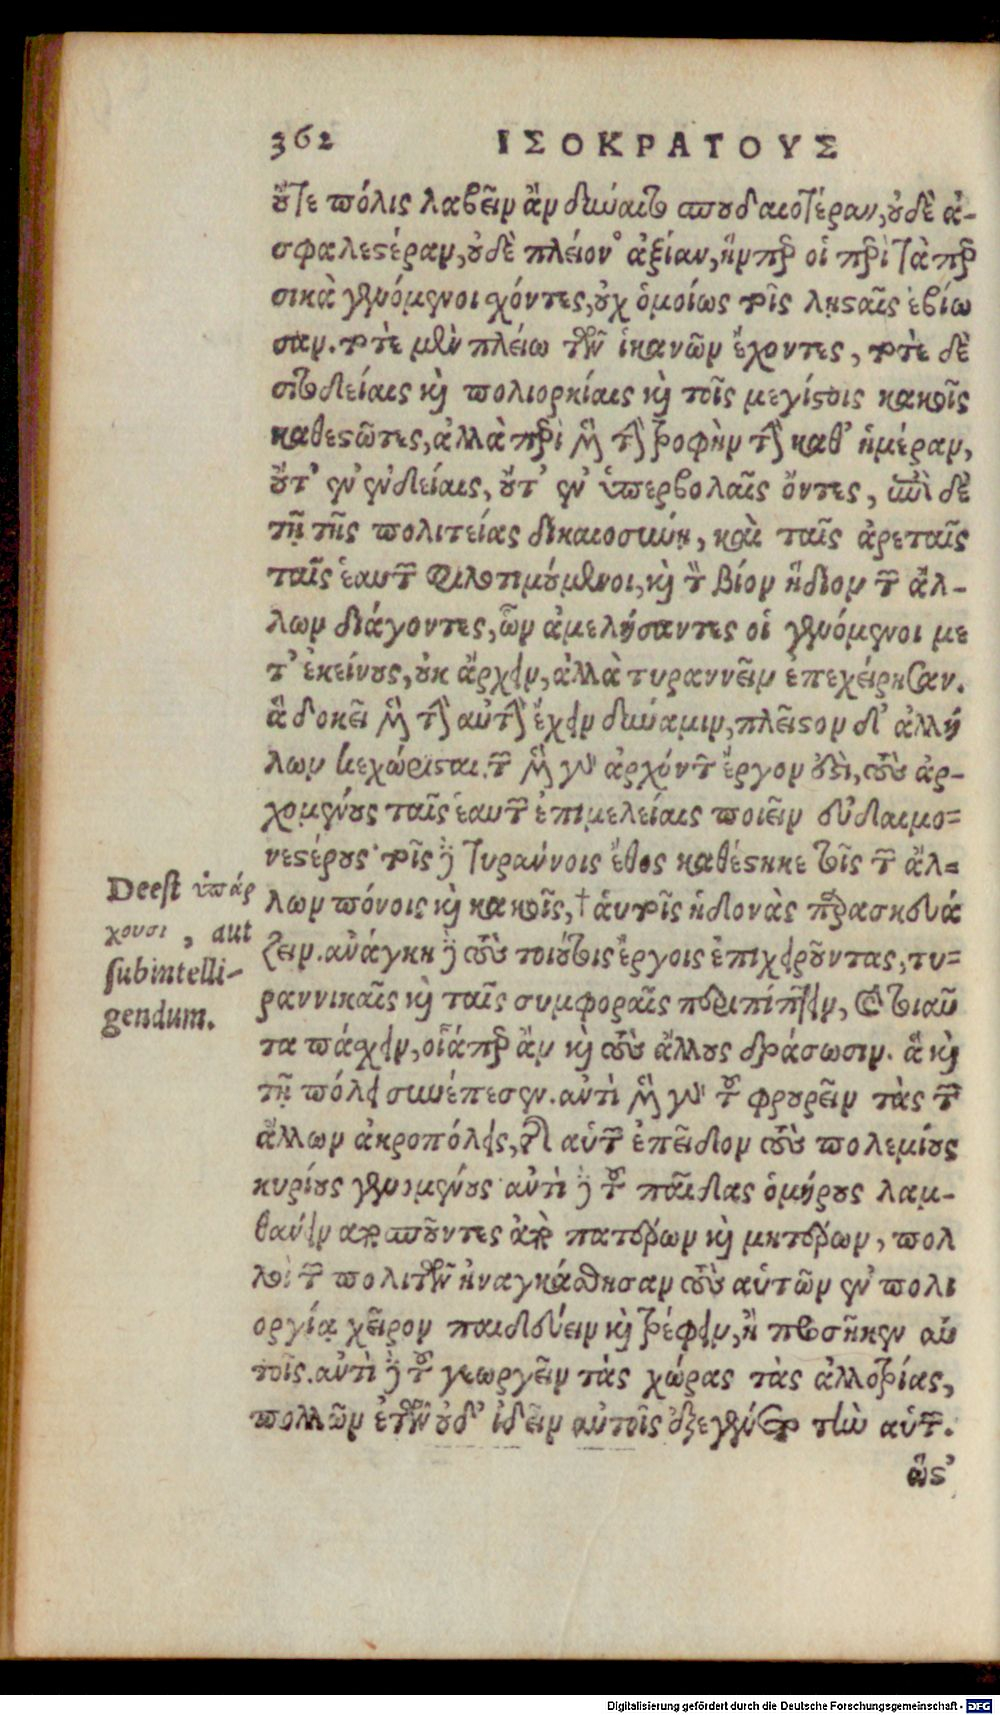 362 ΙΣΟΚΡΑΤΟΥΣ
οὔτε πόλις λαβεῖν ἂν δύναιτο σπουδαιοτέραν, οὐδὲ ἀ-
σφαλεστέραν, οὐδὲ πλείονος ἀξίαν, ἥνπερ οἱ περὶ τὰ περ
σικὰ γενόμενοι χόντες, οὐχ ὁμοίως τοῖς λῃσταῖς ἐβίω
σαν. τοτὲ μὲν πλείω τῶν ἱκανῶν ἔχοντες, τοτὲ δὲ
σιτοδείαις καὶ πολιορκίαις καὶ τοῖς μεγίστοις κακοῖς
καθεστῶτες, ἀλλὰ περὶ μὲν τὴν τροφὴν τὴν καθ' ἡμέραν,
οὔτ' ἐν ἐνδείαις, οὔτ' ἐν ὑπερβολαῖς ὄντες, ἐπὶ δὲ
τῇ τῆς πολιτείας δικαιοσύνῃ, καὶ ταῖς ἀρεταῖς
ταῖς ἑαυτῶν φιλοτιμούμενοι, καὶ τὸν βίον ἥδιον τῶν ἄλ-
λων διάγοντες, ὧν ἀμελήσαντες οἱ γενόμενοι με
τ' ἐκείνους, οὐκ ἄρχειν, ἀλλὰ τυραννεῖν ἐπεχείρησαν.
ἃ δοκεῖ μὲν τὴν αὐτὴν ἔχειν δύναμιν, πλεῖστον δ' ἀλλή
λων κεχώρισται. τῶν μὲν γὰρ ἀρχόντων ἔργον ἐστὶ, τοὺς ἀρ-
χομένους ταῖς ἑαυτῶν ἐπιμελείαις ποιεῖν εὐδαιμο-
νεστέρους· τοῖς δὲ τυράννοις ἔθος καθέστηκε τοῖς τῶν ἄλ-
λων πόνοις καὶ κακοῖς, † αὑτοῖς ἡδονὰς παρασκευά
ζειν. ἀνάγκη δὲ τοὺς τοιούτοις ἔργοις ἐπιχειροῦντας, τυ-
ραννικαῖς καὶ ταῖς συμφοραῖς περιπίπτειν, καὶ τοιαῦ
τα πάσχειν, οἷάπερ ἂν καὶ τοὺς ἄλλους δράσωσιν. ἃ καὶ
τῇ πόλει συνέπεσεν. ἀντὶ μὲν γὰρ τοῦ φρουρεῖν τὰς τῶν
ἄλλων ἀκροπόλεις, τῆς αὑτῶν ἐπεῖδον τοὺς πολεμίους
κυρίους γενομένους· ἀντὶ δὲ τοῦ παῖδας ὁμήρους λαμ-
βάνειν ἀποσπῶντες ἀπὸ πατέρων καὶ μητέρων, πολ
λοὶ τῶν πολιτῶν ἠναγκάσθησαν τοὺς αὑτῶν ἐν πολι
οργίᾳ χεῖρον παιδεύειν καὶ τρέφειν, ἢ προσῆκεν αὐ
τοῖς. ἀντὶ δὲ τοῦ γεωργεῖν τὰς χώρας τὰς ἀλλοτρίας,
πολλῶν ἐτῶν οὐδ' ἰδεῖν αὐτοῖς ἐξεγένετο τὴν αὑτῶν.
ὥστ'
Deest ὑπάρ
χουσι, aut
subintelli-
gendum.
Digitalisierung gefördert durch die Deutsche Forschungsgemeinschaft - DFG